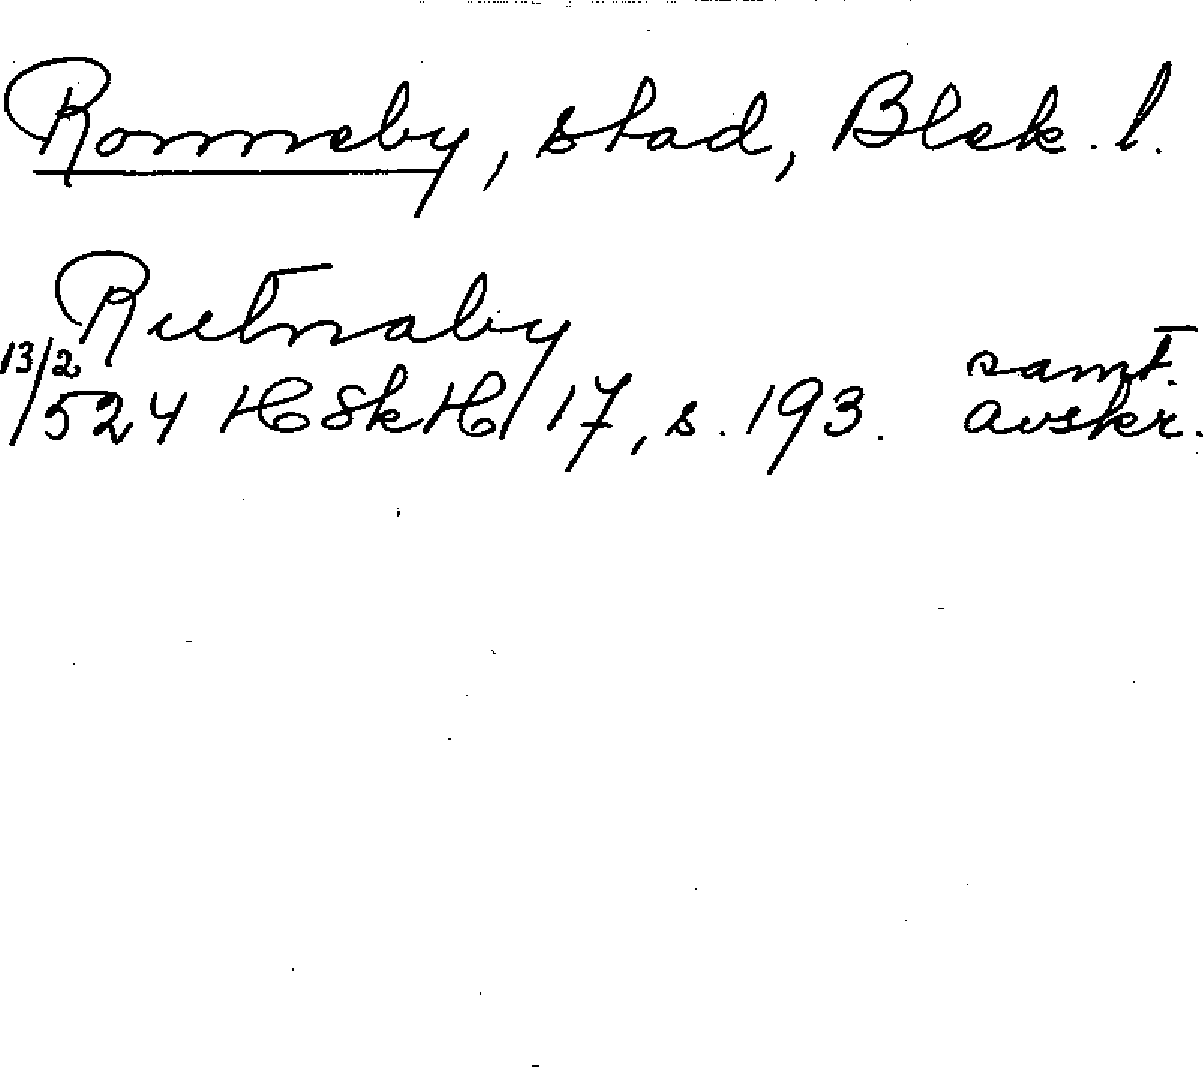 Ronneby, stad, Blek. l.
Rutnaby
13/2 524 HSkH 17, s. 193. samt. avskr.